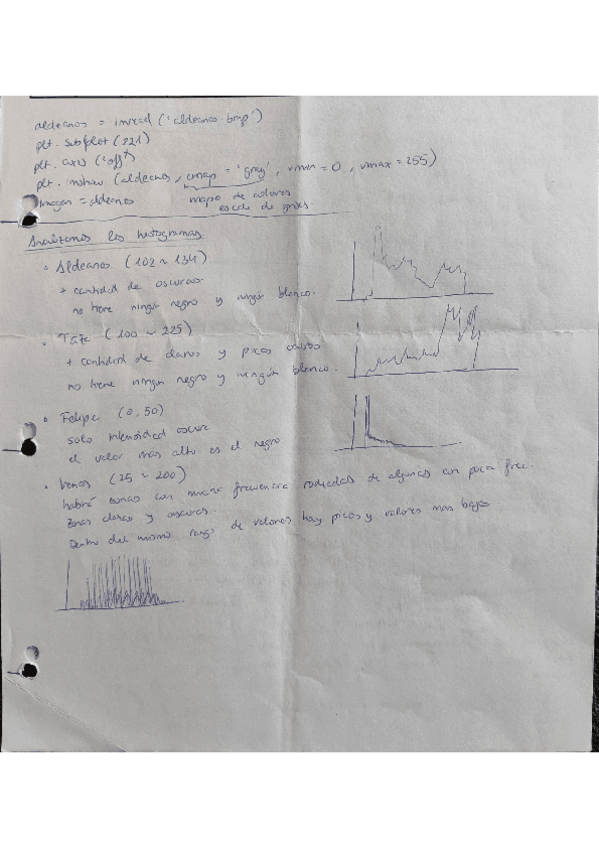 aldeanos = imread ('aldeanos.bmp')
plt. subplot (221)
plt. axis ('off')
plt. imshow (aldeanos, cmap = 'gray', vmin = 0, vmax = 255)
imagen = aldeanos mapa de colores
escala de grises.
Analizamos los histogramas
Aldeanos (102 ~ 134)
+ cantidad de oscuros
no tiene ningún negro y ningún blanco.
(100 ~ 225)
+ cantidad de claros y picos
no tiene ningun negro y ningún blanco.
Felipe (0, 50)
solo intensidad oscura
el valor mas alto es el negro
(25 ~ 200)
habrá zonas con mucha frecuencia rodeadas de algunas con poca frec.
zonas claras y oscuras.
Dentro del mismo rango de valores hay picos y valores mas bajos